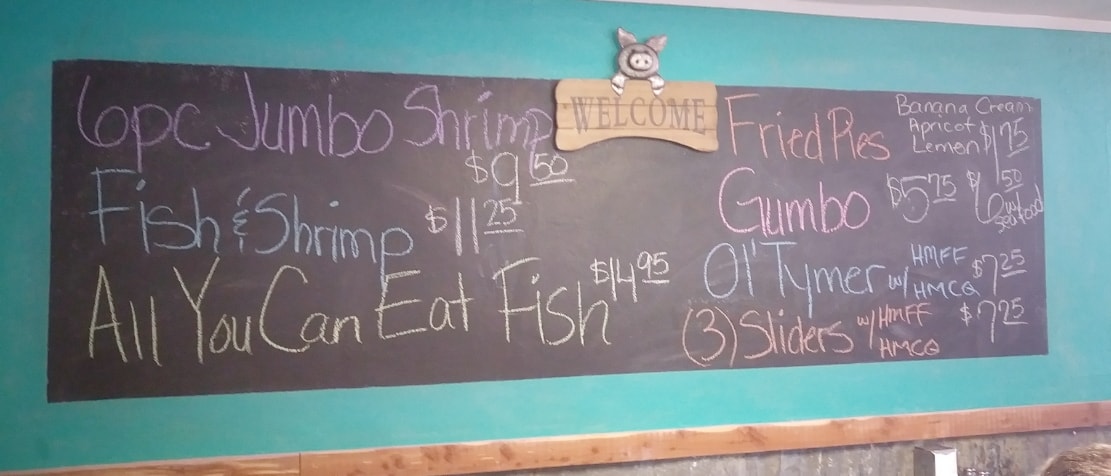 6pc Jumbo Shrimp
$9.50
Fish & Shrimp $11.25
All You Can Eat Fish $14.95
WELCOME
Fried Pies Banana Cream
Apricot
Lemon $1.75
Gumbo $5.75 $6.50
w/
seafood
Ol' Tymer w/ HMFF
HMCQ $7.25
(3) Sliders w/ HMFF
HMCQ $7.25